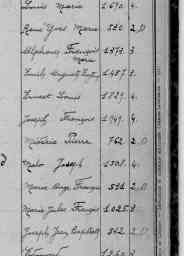 Louis Marie 1690. 4
René Yves Marie 580 2,D
Alphonse François 1573. 3
Emile Auguste 1487 3.
Ernest Louis 1829. 4
Joseph François 1949. 4.
Pierre 762 2,D
Malo Joseph 1508. 4.
Marie Ange François 534 2,D
Marie Jules François 1025 3
Joseph Jean Baptiste 842 2,D